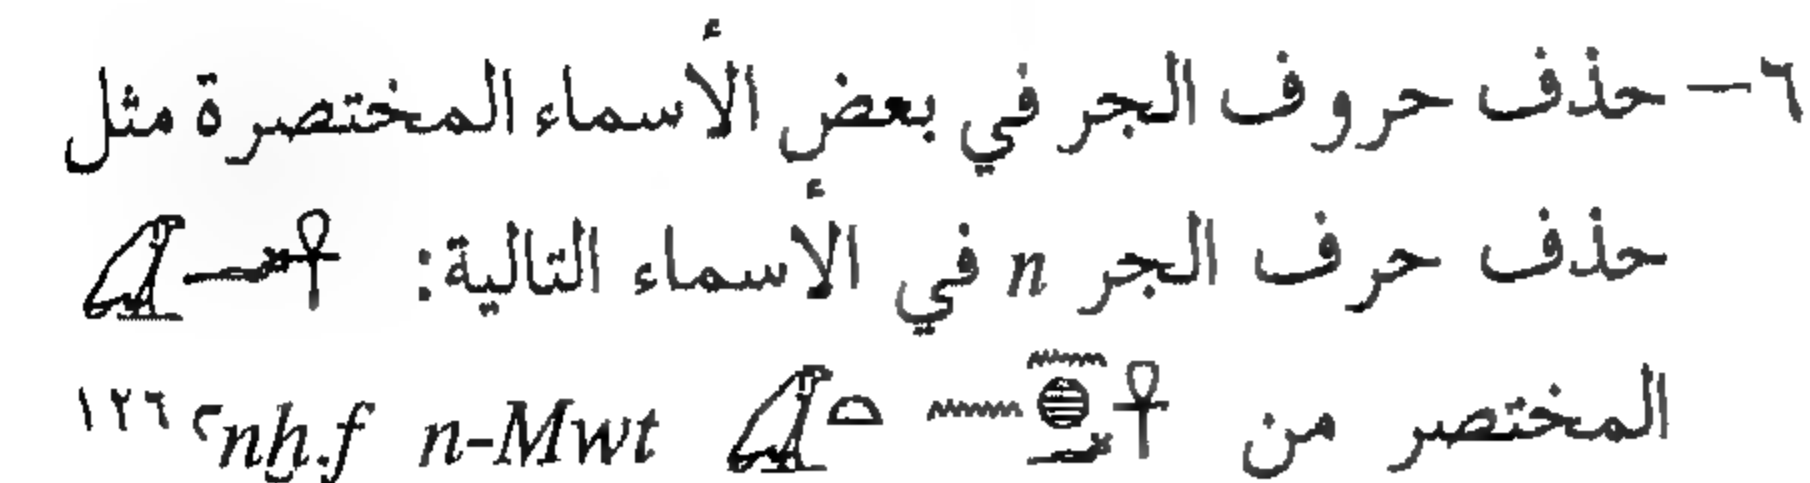 ٦- حذف حروف الجر في بعض الأسماء المختصرة مثل
حذف حرف الجر n في الأسماء التالية: 𓋹𓆑𓅐
المختصر من 𓋹𓈖𓐍𓆑 𓈖 𓏏𓅐 ꜥnḫ.f n-Mwt ١٢٦